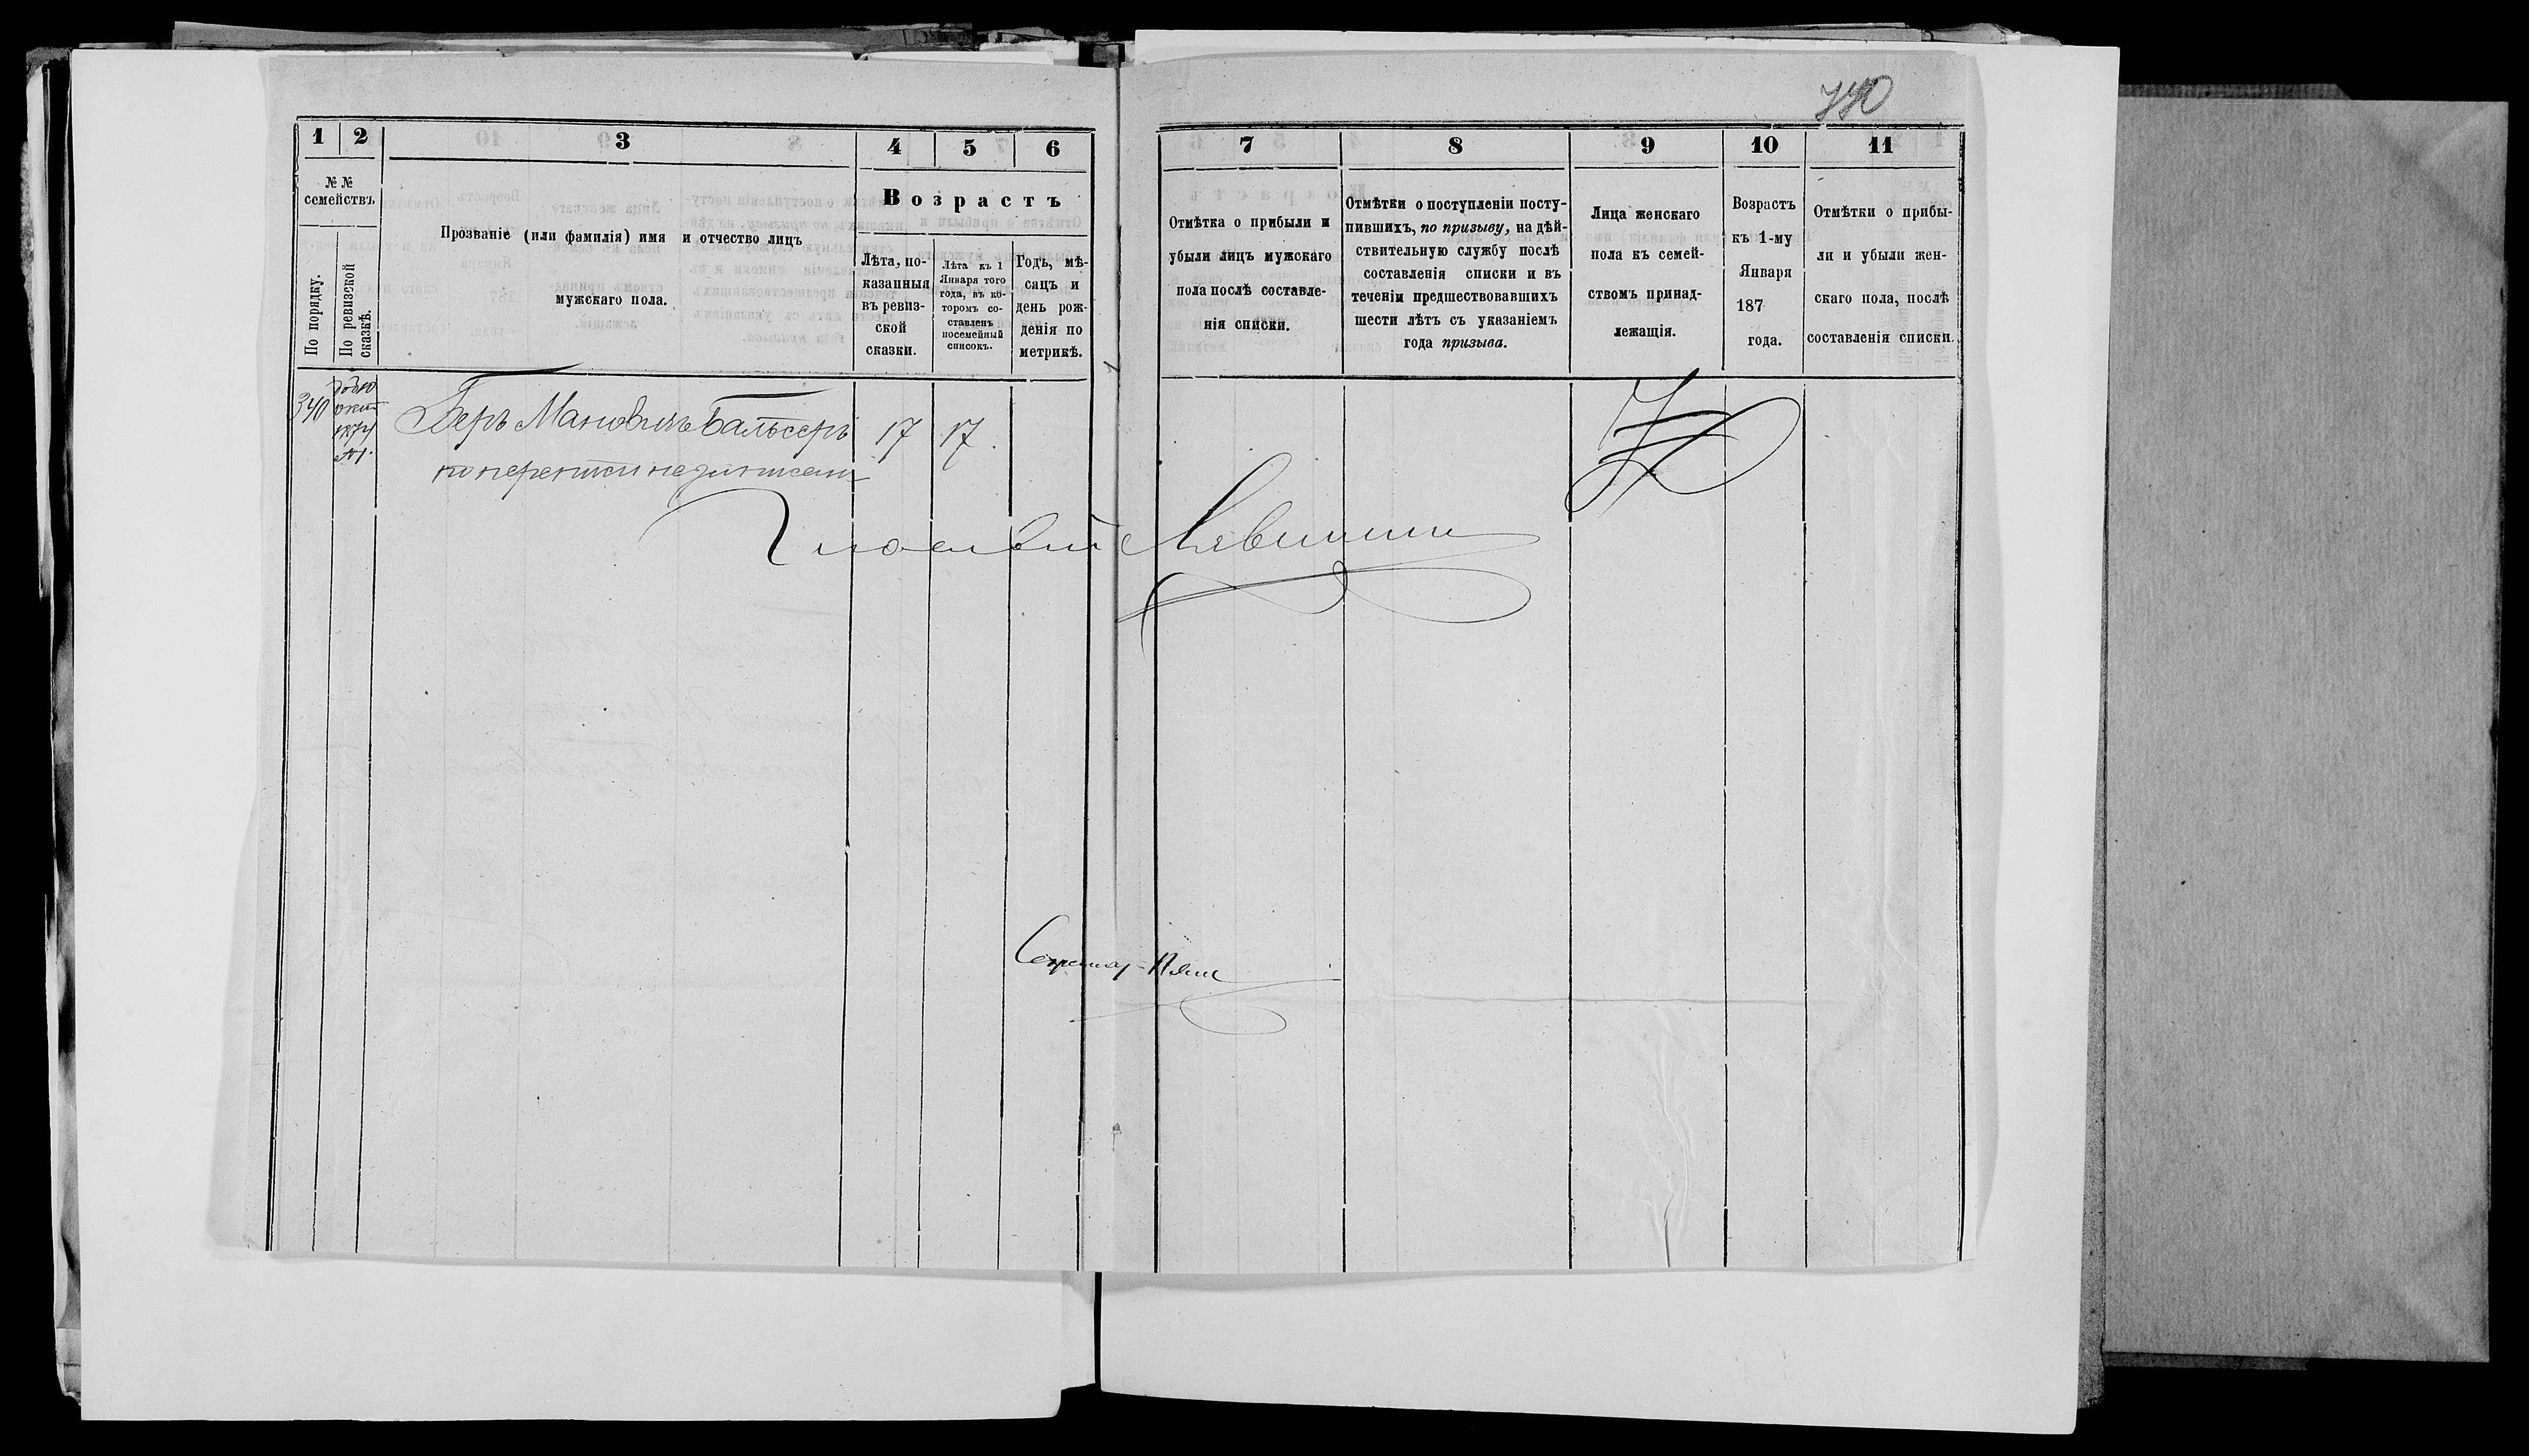 1 2 3 4 5 6
№ №
семействъ
По порядку.
По ревизской
сказкѣ.
Прозваніе (или фамилія) имя и отчество лицъ
мужскаго пола.
Возрастъ
Лѣта, по-
казанныя
въ ревиз-
ской
сказки.
Лѣта къ 1
Января того
года, въ ко-
торомъ со-
ставленъ
посемейный
списокъ.
Годъ, мѣ-
сацъ и
день рож-
денія по
метрикѣ.
340
1874
№1.
Беръ Мановичъ Бальсеръ 17 17.
по переписи не записан
7 8 9 10 11
Отмѣтка о прибыли и
убыли лицъ мужскаго
пола послѣ составле-
нія списки.
Отмѣтки о поступленіи посту-
пившихъ, по призыву, на дѣй-
ствительную службу послѣ
составленія списки и въ
теченіи предшествовавшихъ
шести лѣтъ съ указаніемъ
года призыва.
Лица женскаго
пола къ семей-
ствомъ принад-
лежащія.
Возрастъ
къ 1-му
Января
187
года.
Отмѣтки о прибы-
ли и убыли жен-
скаго пола, послѣ
составленія списки.